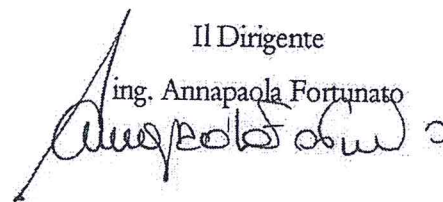 Il Dirigente
ing. Annapaola Fortunato